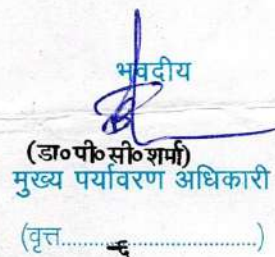 भवदीय
(डा०पी० सी० शर्मा)
मुख्य पर्यावरण अधिकारी
(वृत्त..........६..........................)